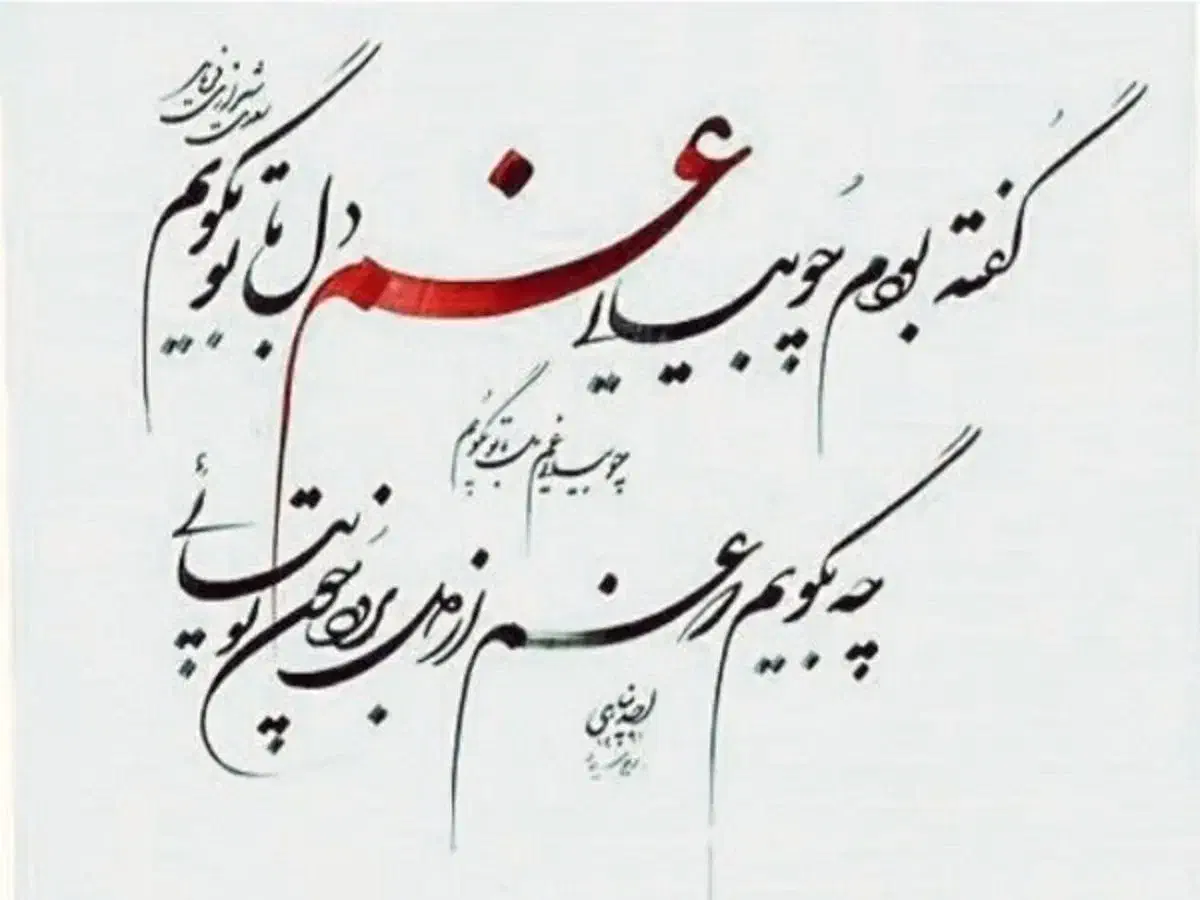 سعدی شیرازی فرماید
گفته بودم چو بیایی غم دل با تو بگویم
چو بیایی غم دل با تو بگویم
چه بگویم که غم از دل برود چون تو بیائی
۱۳۹۱